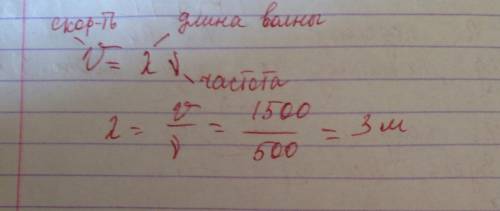 скор-ть длина волны
V = λ ν
частота
λ = V/ν = 1500/500 = 3 м